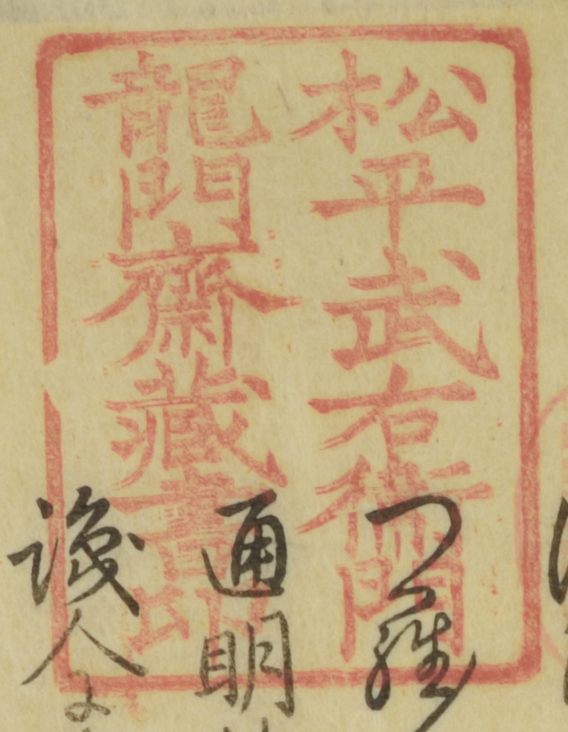 松平武右衛門
龍門齋藏書印
つ羅
通明
識人